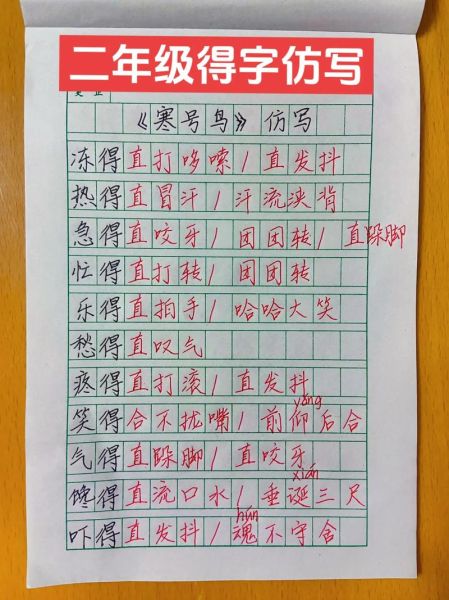 二年级得字仿写
更正
《寒号鸟》仿写
冻得直打哆嗦/直发抖
热得直冒汗/汗流浃背
急得直咬牙/团团转/直跺脚
忙得直打转/团团转
乐得直拍手/哈哈大笑
愁得直叹气
疼得直打滚/直发抖
yǎng
笑得合不拢嘴/前仰后合
气得直跺脚/直咬牙
xián
馋得直流口水/垂涎三尺
hún
吓得直发抖/魂不守舍